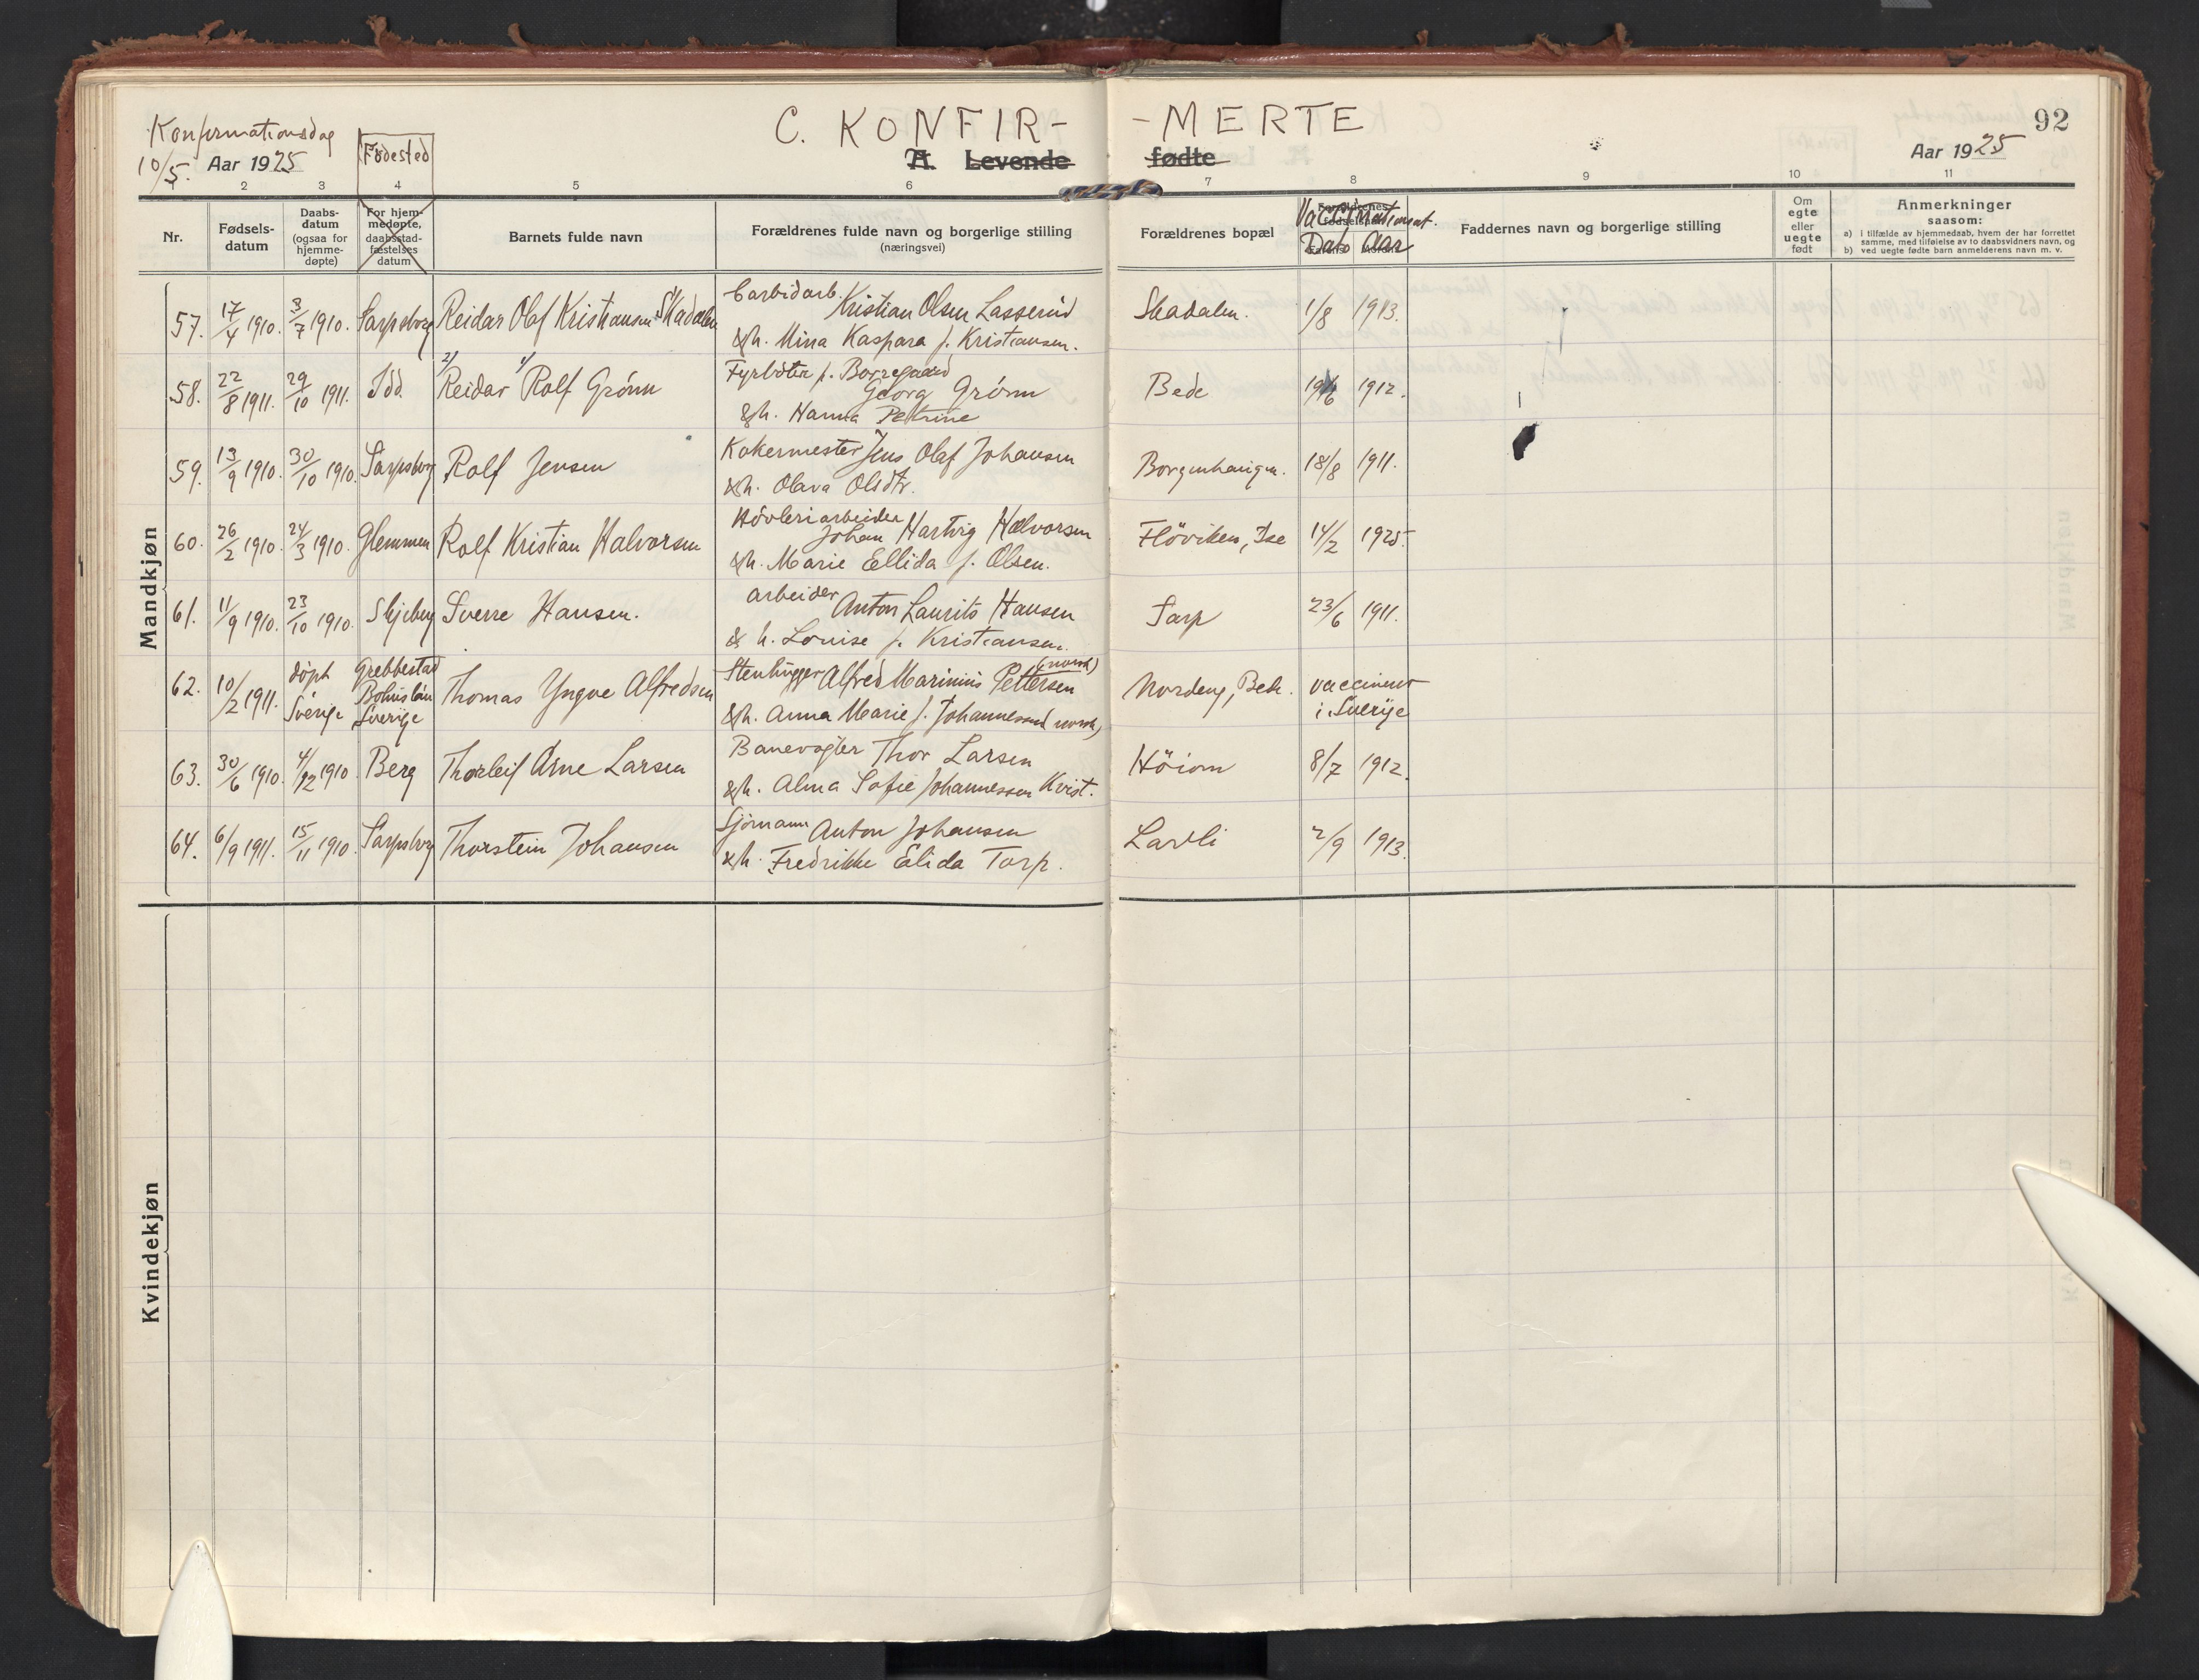 Konfirmationsdag
10/5. Aar 1925
Fødested
C. KONFIR- -MERTE
A. Levende fødte
92
Aar 1925
1 2 3 4 5 6 7 8 9 10 11
Nr.
Fødsels-
datum
Daabs-
datum
(ogsaa for
hjemme-
døpte)
For hjem-
medøpte,
daabsstad-
fæstelses
datum
Barnets fulde navn
Forældrenes fulde navn og borgerlige stilling
(næringsvei)
Forældrenes bopæl
Dato Aar
Faddernes navn og borgerlige stilling
Om
egte
eller
uegte
født
Anmerkninger
saasom:
a) i tilfælde av hjemmedaab, hvem der har forrettet
samme, med tilføielse av to daabsvidners navn, og
b) ved uegte fødte barn anmelderens navn m. v.
Mandkjøn
57. 17/4 1910. 3/7 1910. Sarpsborg Reidar Olaf Kristiansen Skadalen
Carbidarb. Kristian Olsen Lasserud
&h. Mina Kaspara f. Kristiansen.
Skadalen. 1/8 1913.
58. 22/8 1911. 29/10 1911. Idd. 2/ Reidar 1/ Rolf Grönn
Fyrböter f. Borregaard
Georg Grönn
&h. Hanna Petrine
Bede 1912.
59. 13/9 1910. 30/10 1910. Sarpsborg Rolf Jensen
Kokermester Jens Olaf Johansen
&h. Olava Olsdtr.
Borgenhaugen. 18/8 1911.
60. 26/2 1910. 24/3 1910. Glemmen Rolf Kristian Halvorsen
Hövleriarbeider
Johan Hartvig Halvorsen
&h. Marie Ellida f. Olsen.
Flöviken, Ise 14/2 1925.
61. 11/9 1910. 23/10 1910. Skjeberg Sverre Hansen.
arbeider Anton Laurits Hansen
& h. Louise f. Kristiansen.
Sarp 23/6 1911.
62. 10/2 1911. döpt Sverige Grebbestad Bohuslän Sverige Thomas Yngve Alfredsen
Stenhugger Alfred Marinius Pettersen (norsk)
&h. Anna Marie f. Johannessen (norsk)
Nordeng, Bede. vaccinert
i Sverige
63. 30/6 1910. 4/12 1910 Berg Thorleif Arne Larsen
Banevogter Thor Larsen
&h. Alma Sofie Johannessen Kvist.
Höiom 8/7 1912.
64. 6/9 1911. 15/11 1910. Sarpsborg Thorstein Johansen
Sjömann Anton Johansen
&h. Fredrikke Elida Torp.
2/9 1913.
Kvindekjøn